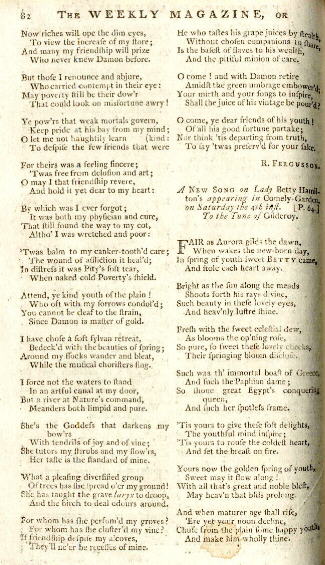 82 THE WEEKLY MAGAZINE, OR
Now riches will ope the dim eyes,
To view the increase of my store;
And many my friendship will prize
Who never knew Damon before.
But those I renounce and abjure,
Who carried contempt in their eye;
May poverty still be their dow'r
That could look on misfortune awry!
Ye pow'rs that weak mortals govern,
Keep pride at his bay from my mind;
O let me not haughtily learn [kind:
To despise the few friends that were
For theirs was a feeling sincere;
'Twas free from delusion and art;
O may I that friendship revere,
And hold it yet dear to my heart:
By which was I ever forgot;
It was both my physician and cure,
That still found the way to my cot,
Altho' I was wretched and poor:
'Twas balm to my canker-tooth'd care;
The wound of affliction it heal'd;
In distress it was Pity's soft tear,
When naked cold Poverty's shield.
Attend, ye kind youth of the plain!
Who oft with my sorrows condol'd;
You cannot be deaf to the strain,
Since Damon is master of gold.
I have chose a soft sylvan retreat,
Bedeck'd with the beauties of spring;
Around my flocks wander and bleat,
While the musical choristers sing.
I force not the waters to stand
In an artful canal at my door,
But a river at Nature's command,
Meanders both limpid and pure.
She's the Goddess that darkens my
bow'rs
With tendrils of joy and of vine;
She tutors my shrubs and my flow'rs,
Her taste is the standard of mine.
What a pleasing diversified group
Of trees has she spread o'er my ground!
She has taught the grave laryx to droop,
And the birch to deal odours around.
For whom has she perfum'd my groves?
For whom has she cluster'd my vine?
If friendship despise my alcoves,
They'll ne'er be recesses of mine.
He who tastes his grape juices by stealth,
Without chosen companions to share,
Is the basest of slaves to his wealth,
And the pitiful minion of care.
O come! and with Damon retire
Amidst the green umbrage embower'd;
Your mirth and your songs to inspire,
Shall the juice of his vintage be pour'd?
O come, ye dear friends of his youth!
Of all his good fortune partake;
Nor think 'tis departing from truth,
To say 'twas preserv'd for your sake.
R. FERGUSSON.
A NEW SONG on Lady Betty Hamil-
ton's appearing in Comely-Garden,
on Saturday the 4th inst. [P. 64.]
To the Tune of Gilderoy.
FAIR as Aurora gilds the dawn,
When wakes the new-born day,
In spring of youth sweet BETTY came,
And stole each heart away.
Bright as the sun along the meads
Shoots forth his rays divine,
Such beauty in these lovely eyes,
And heav'nly lustre shine.
Fresh with the sweet celestial dew,
As blooms the op'ning rose,
So pure, so sweet these lovely cheeks,
Their springing bloom disclose.
Such was th' immortal boast of Greece,
And such the Paphian dame;
So shone great Egypt's conquering
queen,
And such her spotless frame.
'Tis yours to give these soft delights,
The youthful mind inspire;
'Tis yours to rouse the coldest heart,
And set the breast on fire.
Yours now the golden spring of youth,
Sweet may it flow along!
With all that's great and noble blest,
May heav'n that bliss prolong.
And when maturer age shall rise,
'Ere yet your noon decline,
Chuse from the plain some happy youth,
And make him wholly thine.